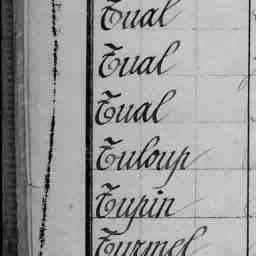 Tual
Tual
Tual
Tuloup
Tupin
Turmel